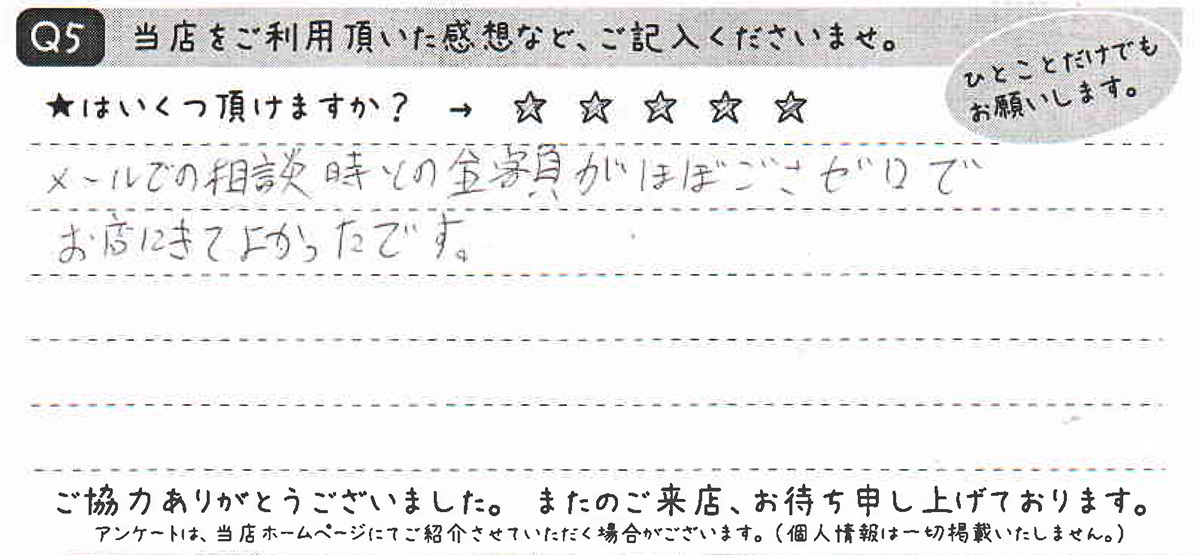 Q5 当店をご利用頂いた感想など、ご記入くださいませ。
ひとことだけでも
お願いします。
★はいくつ頂けますか? → ☆ ☆ ☆ ☆ ☆
メールでの相談時との金額がほぼごさゼロで
お店にきてよかったです。
ご協力ありがとうございました。 またのご来店、お待ち申し上げております。
アンケートは、当店ホームページにてご紹介させていただく場合がございます。(個人情報は一切掲載いたしません。)